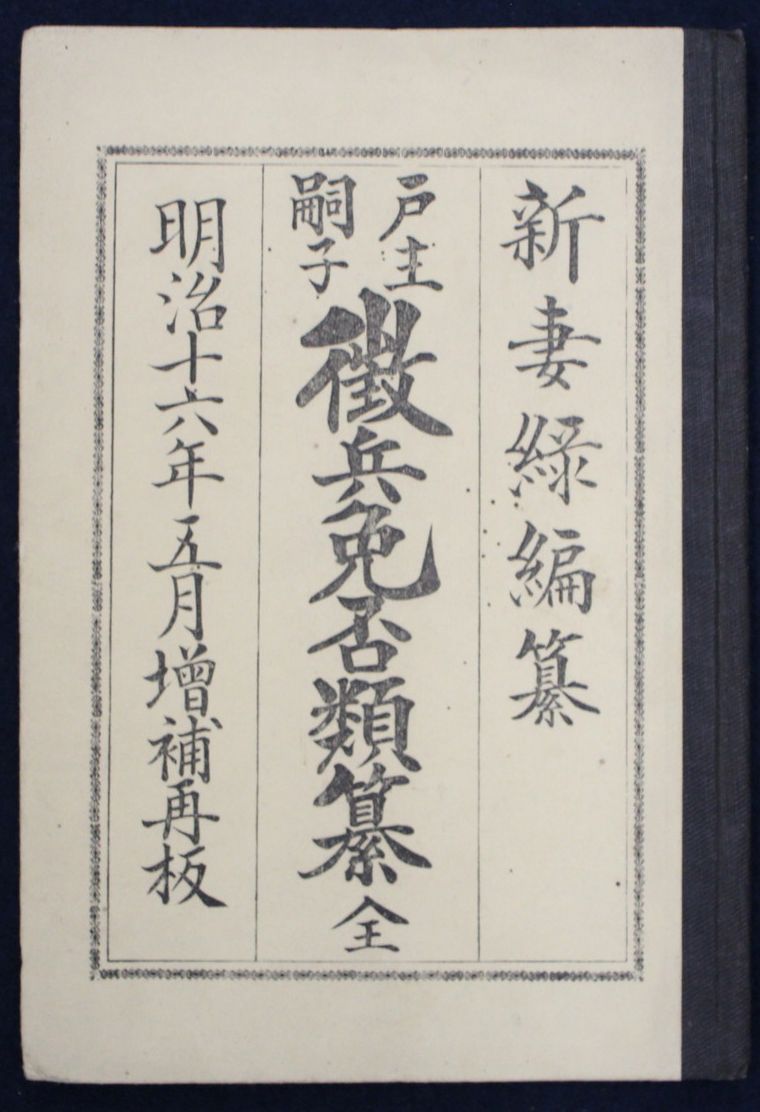 新妻緑編纂
戸主
嗣子
徴兵免否類纂全
明治十六年五月增補再板